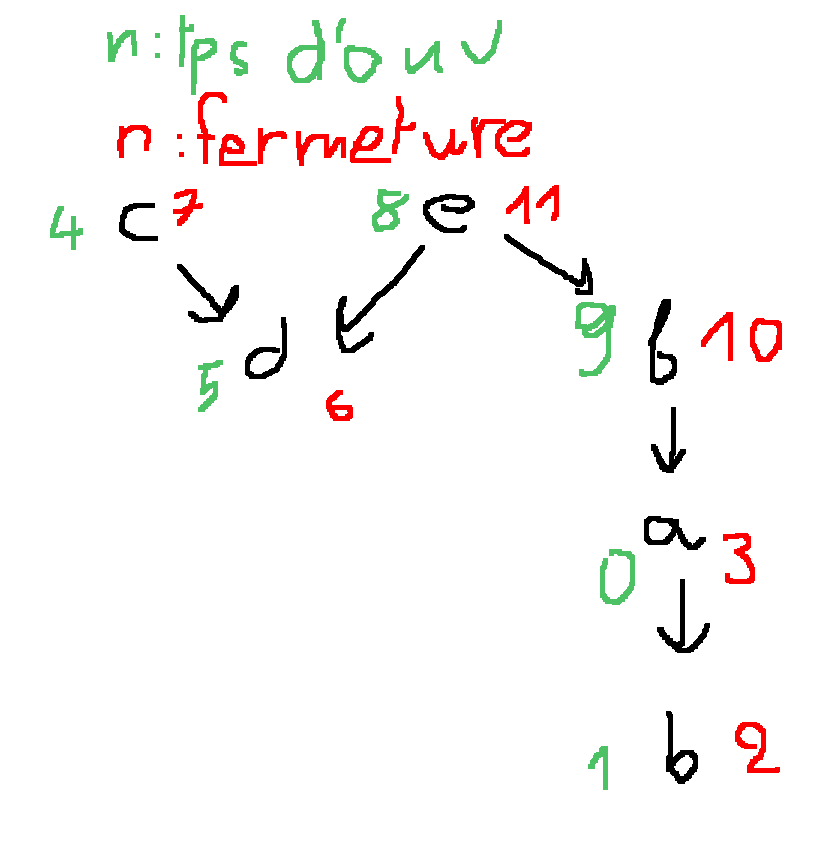 n:tps d'ouv
n:fermeture
4 c 7 8 e 11
5 d 6 9 f 10
0 a 3
1 b 2